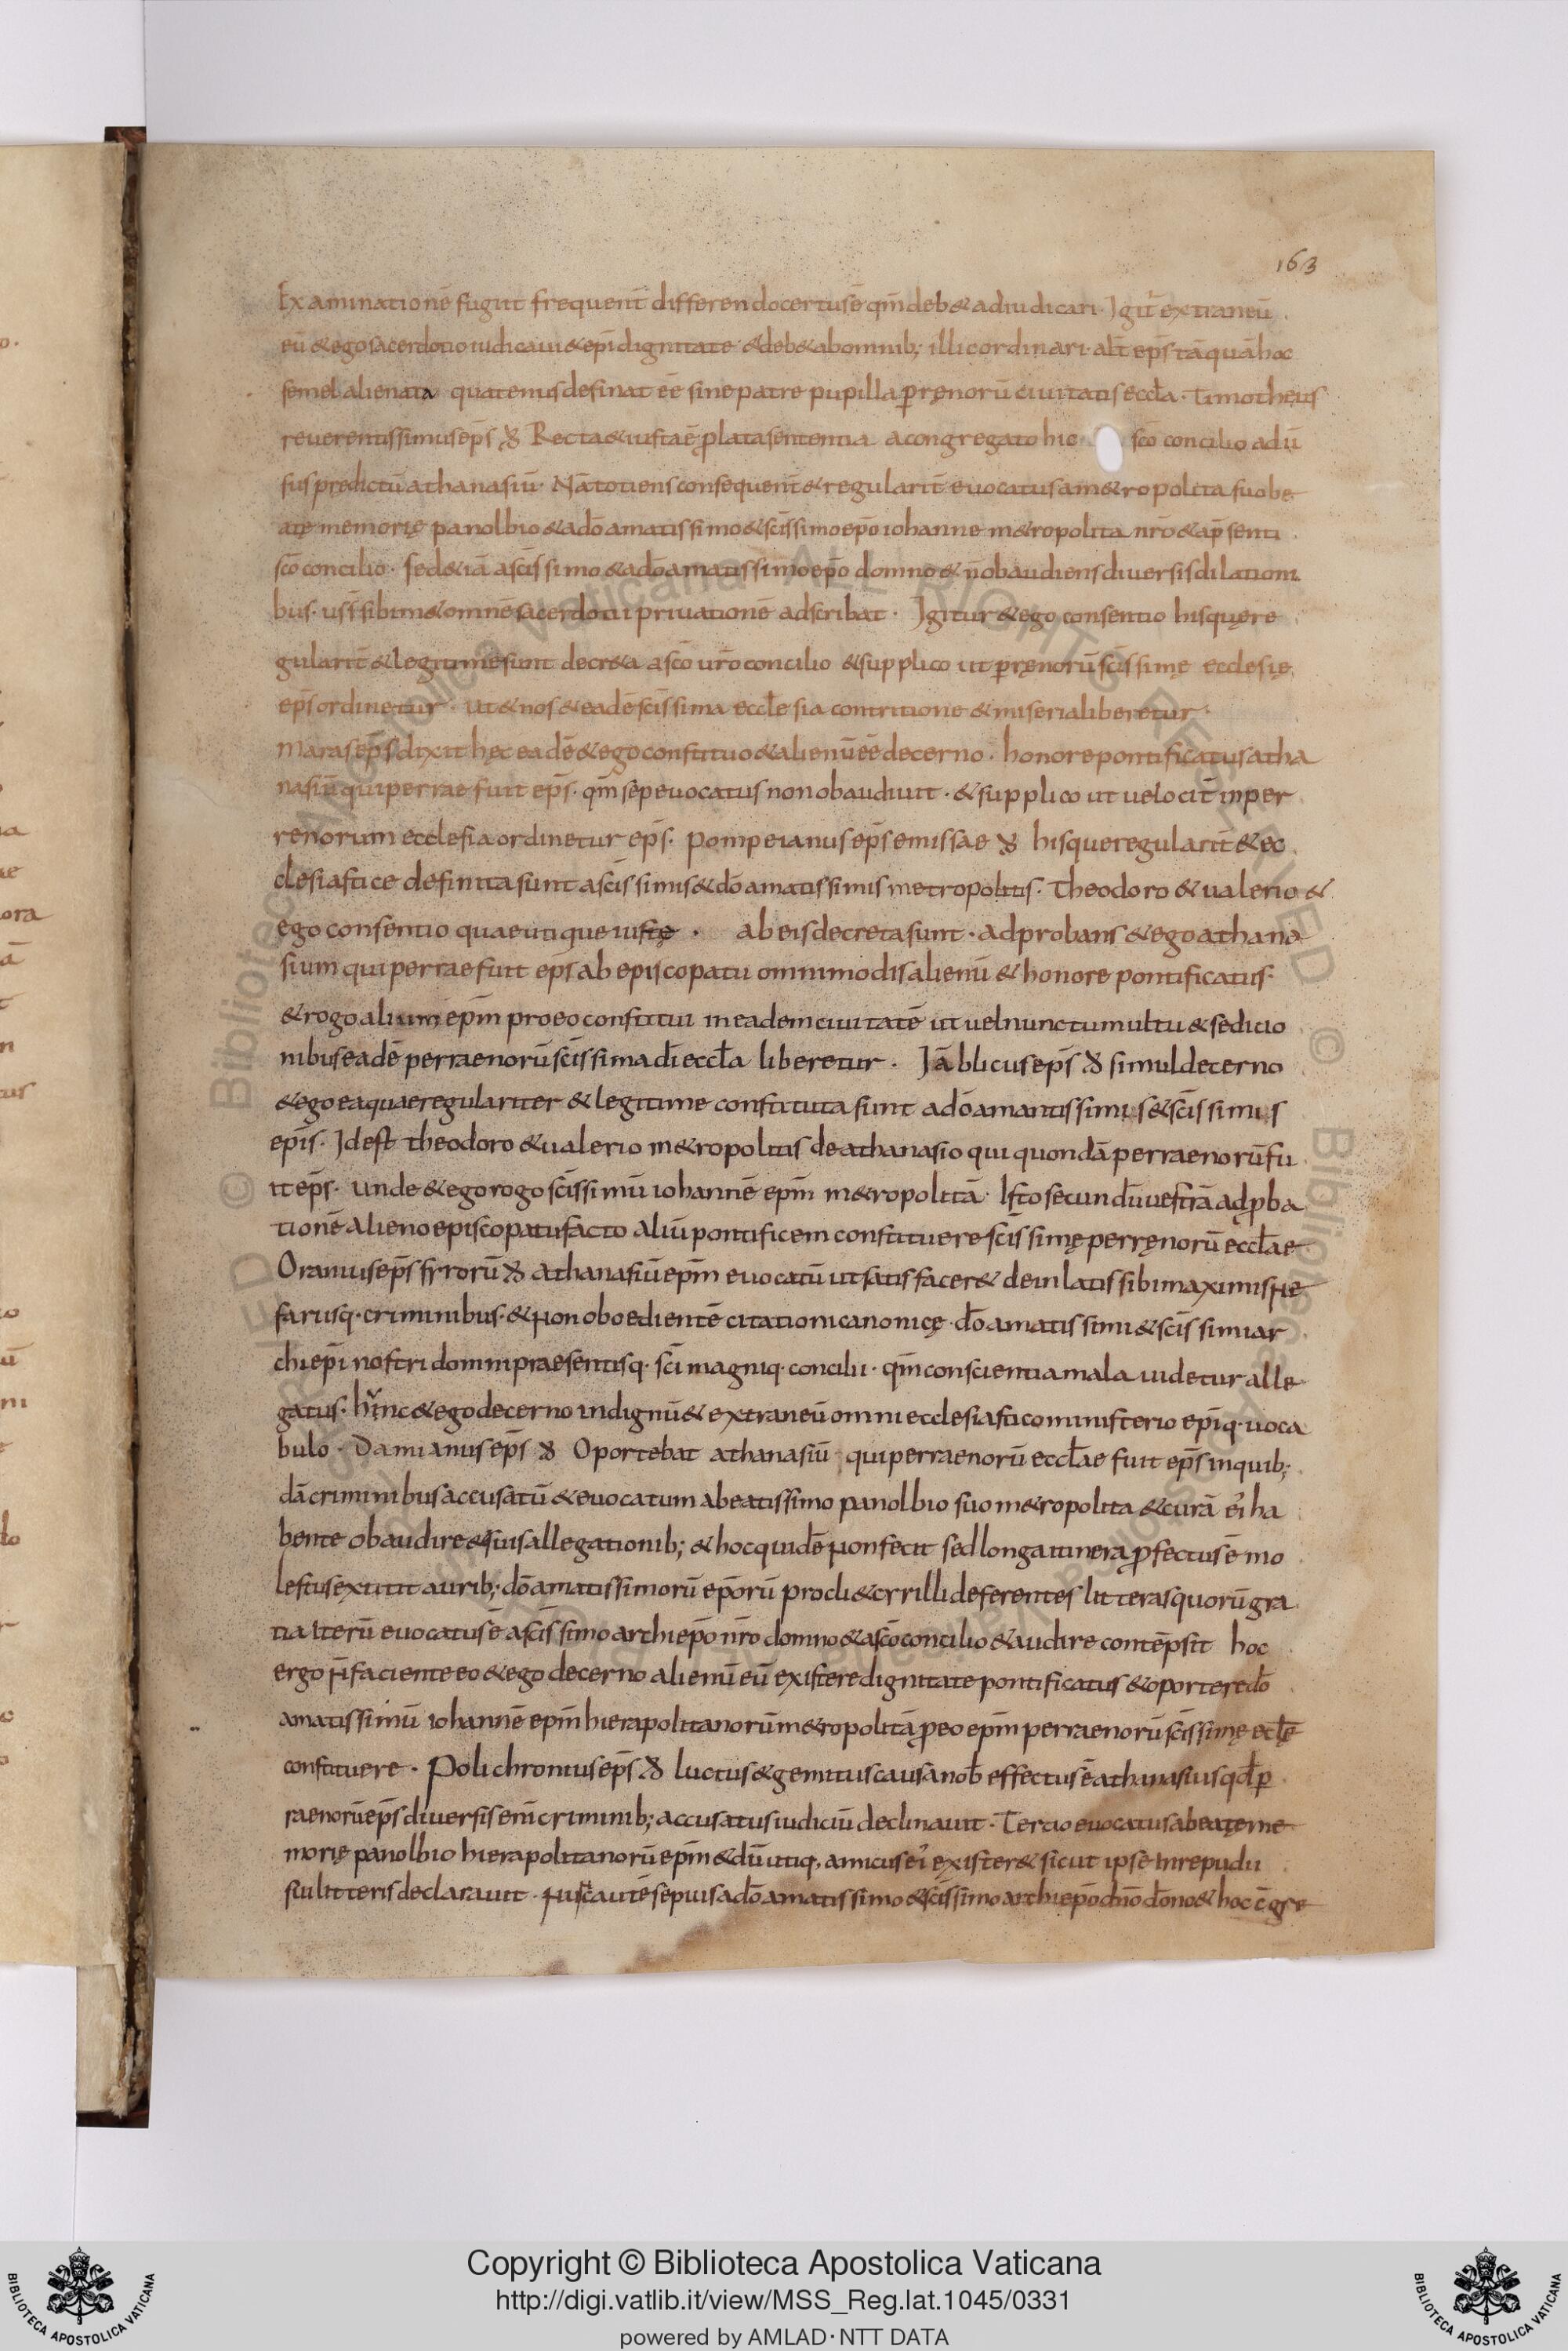 163
Examinationē fugit frequent̄ differendo certus ē qm̄ deb& adiudicari· Igit̄ extraneū
eū & ego sacerdotio iudicaui & ep̄i dignitate & deb& ab omnib; illic ordinari· alt̄ ep̄s tāquā hoc
semel alienata quatenus desinat eē sine patre pupilla perręnorū ciuitatis eccƚa· Timotheus
reuerentissimus ep̄s đ Recta & iusta ē plata sententia a congregato hic sc̄o concilio adū
sus predictū athanasiū· Nā totiens consequent̄ & regularit̄ euocatus a m&ropolita suo be
atę memorię panolbio & a dō amatissimo & sc̄issimo ep̄o iohanne m&ropolita nr̄o & a p̄senti
sc̄o concilio· sed & iā a sc̄issimo & a dō amatissimo ep̄o domno & n̄ obaudiens diuersis dilationi
bus· sibim& omnē sacerdotii priuationē adscribat· Igitur & ego consentio his quę re
gularit̄ & legitime sunt decr&a a sc̄o ur̄o concilio & supplico ut perręnorū sc̄issimę ecclesię
ep̄s ordinetur· ut & nos & eadē sc̄issima ecclesia contritione & miseria liberetur·
Maras ep̄s dixit hęc eadē & ego constituo & alienū eē decerno· honore pontificatus atha
nasiū qui perrae fuit ep̄s· qm̄ sepe uocatus non obaudiuit· & supplico ut uelocit̄ in per
renorum ecclesia ordinetur ep̄s· Pompeianus ep̄s emissae đ his que regularit̄ & ec
clesiastice definita sunt a sc̄issimis & dō amatissimis metropolitis· Theodoro & ualerio &
ego consentio quae utique iustę · ab eis decreta sunt· adprobans & ego athana
sium qui perrae fuit ep̄s ab episcopatu omnimodis alienū & honore pontificatus·
& rogo alium ep̄m pro eo constitui in eadem ciuitatē ut uel nunc tumultu & sedicio
nibus eadē perraenorū sc̄issima dī eccƚa liberetur· Iāblicus ep̄s đ simul decerno
& ego ea quae regulariter & legitime constituta sunt a dō amantissimis & sc̄issimis
ep̄is· Idest theodoro & ualerio m&ropolitis de athanasio qui quondā perraenorū fu
it ep̄s· unde & ego rogo sc̄issimū iohannē ep̄m m&ropolitā· Isto secundū uestrā adp̄ba
tionē alieno episcopatu facto aliū pontificem constituere sc̄issimę perręnorū eccƚae
Oranius ep̄s đ athanasiū ep̄m euocatū ut satisfacer& de inlatis sibi maximis ne
farusq· criminibus· & non oboedientē citationi canonicę· dō amatissimi & sc̄issimi ar
chiep̄i nostri domni praesentisq· sc̄i magniq· concilii· qm̄ conscientia mala uidetur alle
gatus· hinc & ego decerno indignū & extraneū omni ecclesiastico ministerio ep̄iq· uoca
bulo· Damianus ep̄s đ Oportebat athanasiū qui perraenorū eccƚae fuit ep̄s in quib;
dā criminibus accusatū & euocatum a beatissimo panolbio suo m&ropolita & curā ei ha
bente obaudire & suis allegationib; & hoc quidē non fecit sed longa itinera profectus ē mo
lestus extitit aurib; dō amatissimorū ep̄orū procli & cyrilli deferentes litteras quorū gra
tia iterū euocatus ē a sc̄issimo archiep̄o nr̄o domno & a sc̄o concilio & audire contēpsit hoc
ergo n̄ faciente eo & ego decerno alienū eū existere dignitate pontificatus & oportere dō
amatissimū iohannē ep̄m hierapolitanorū m&ropolitā pro eo ep̄m perraenorū sc̄issimę eccƚę
constituere· Polichronius ep̄s đ luctus & gemitus causa nob̄ effectus ē athanasius qđ per
raenorū ep̄s diuersis eni criminib; accusatus iudiciū declinauit· Tertio euocatus a beatę me
morię panolbio hierapolitanorū ep̄m & dū utiq· amicus ei exister& sicut ipse in repudii
sui litteris declarauit· autē sepius a dō amatissimo & sc̄issimo archiep̄o dn̄o domno & hoc
Copyright © Biblioteca Apostolica Vaticana
http://digi.vatlib.it/view/MSS_Reg.lat.1045/0331
powered by AMLAD·NTT DATA
BIBLIOTECA APOSTOLICA VATICANA
BIBLIOTECA APOSTOLICA VATICANA